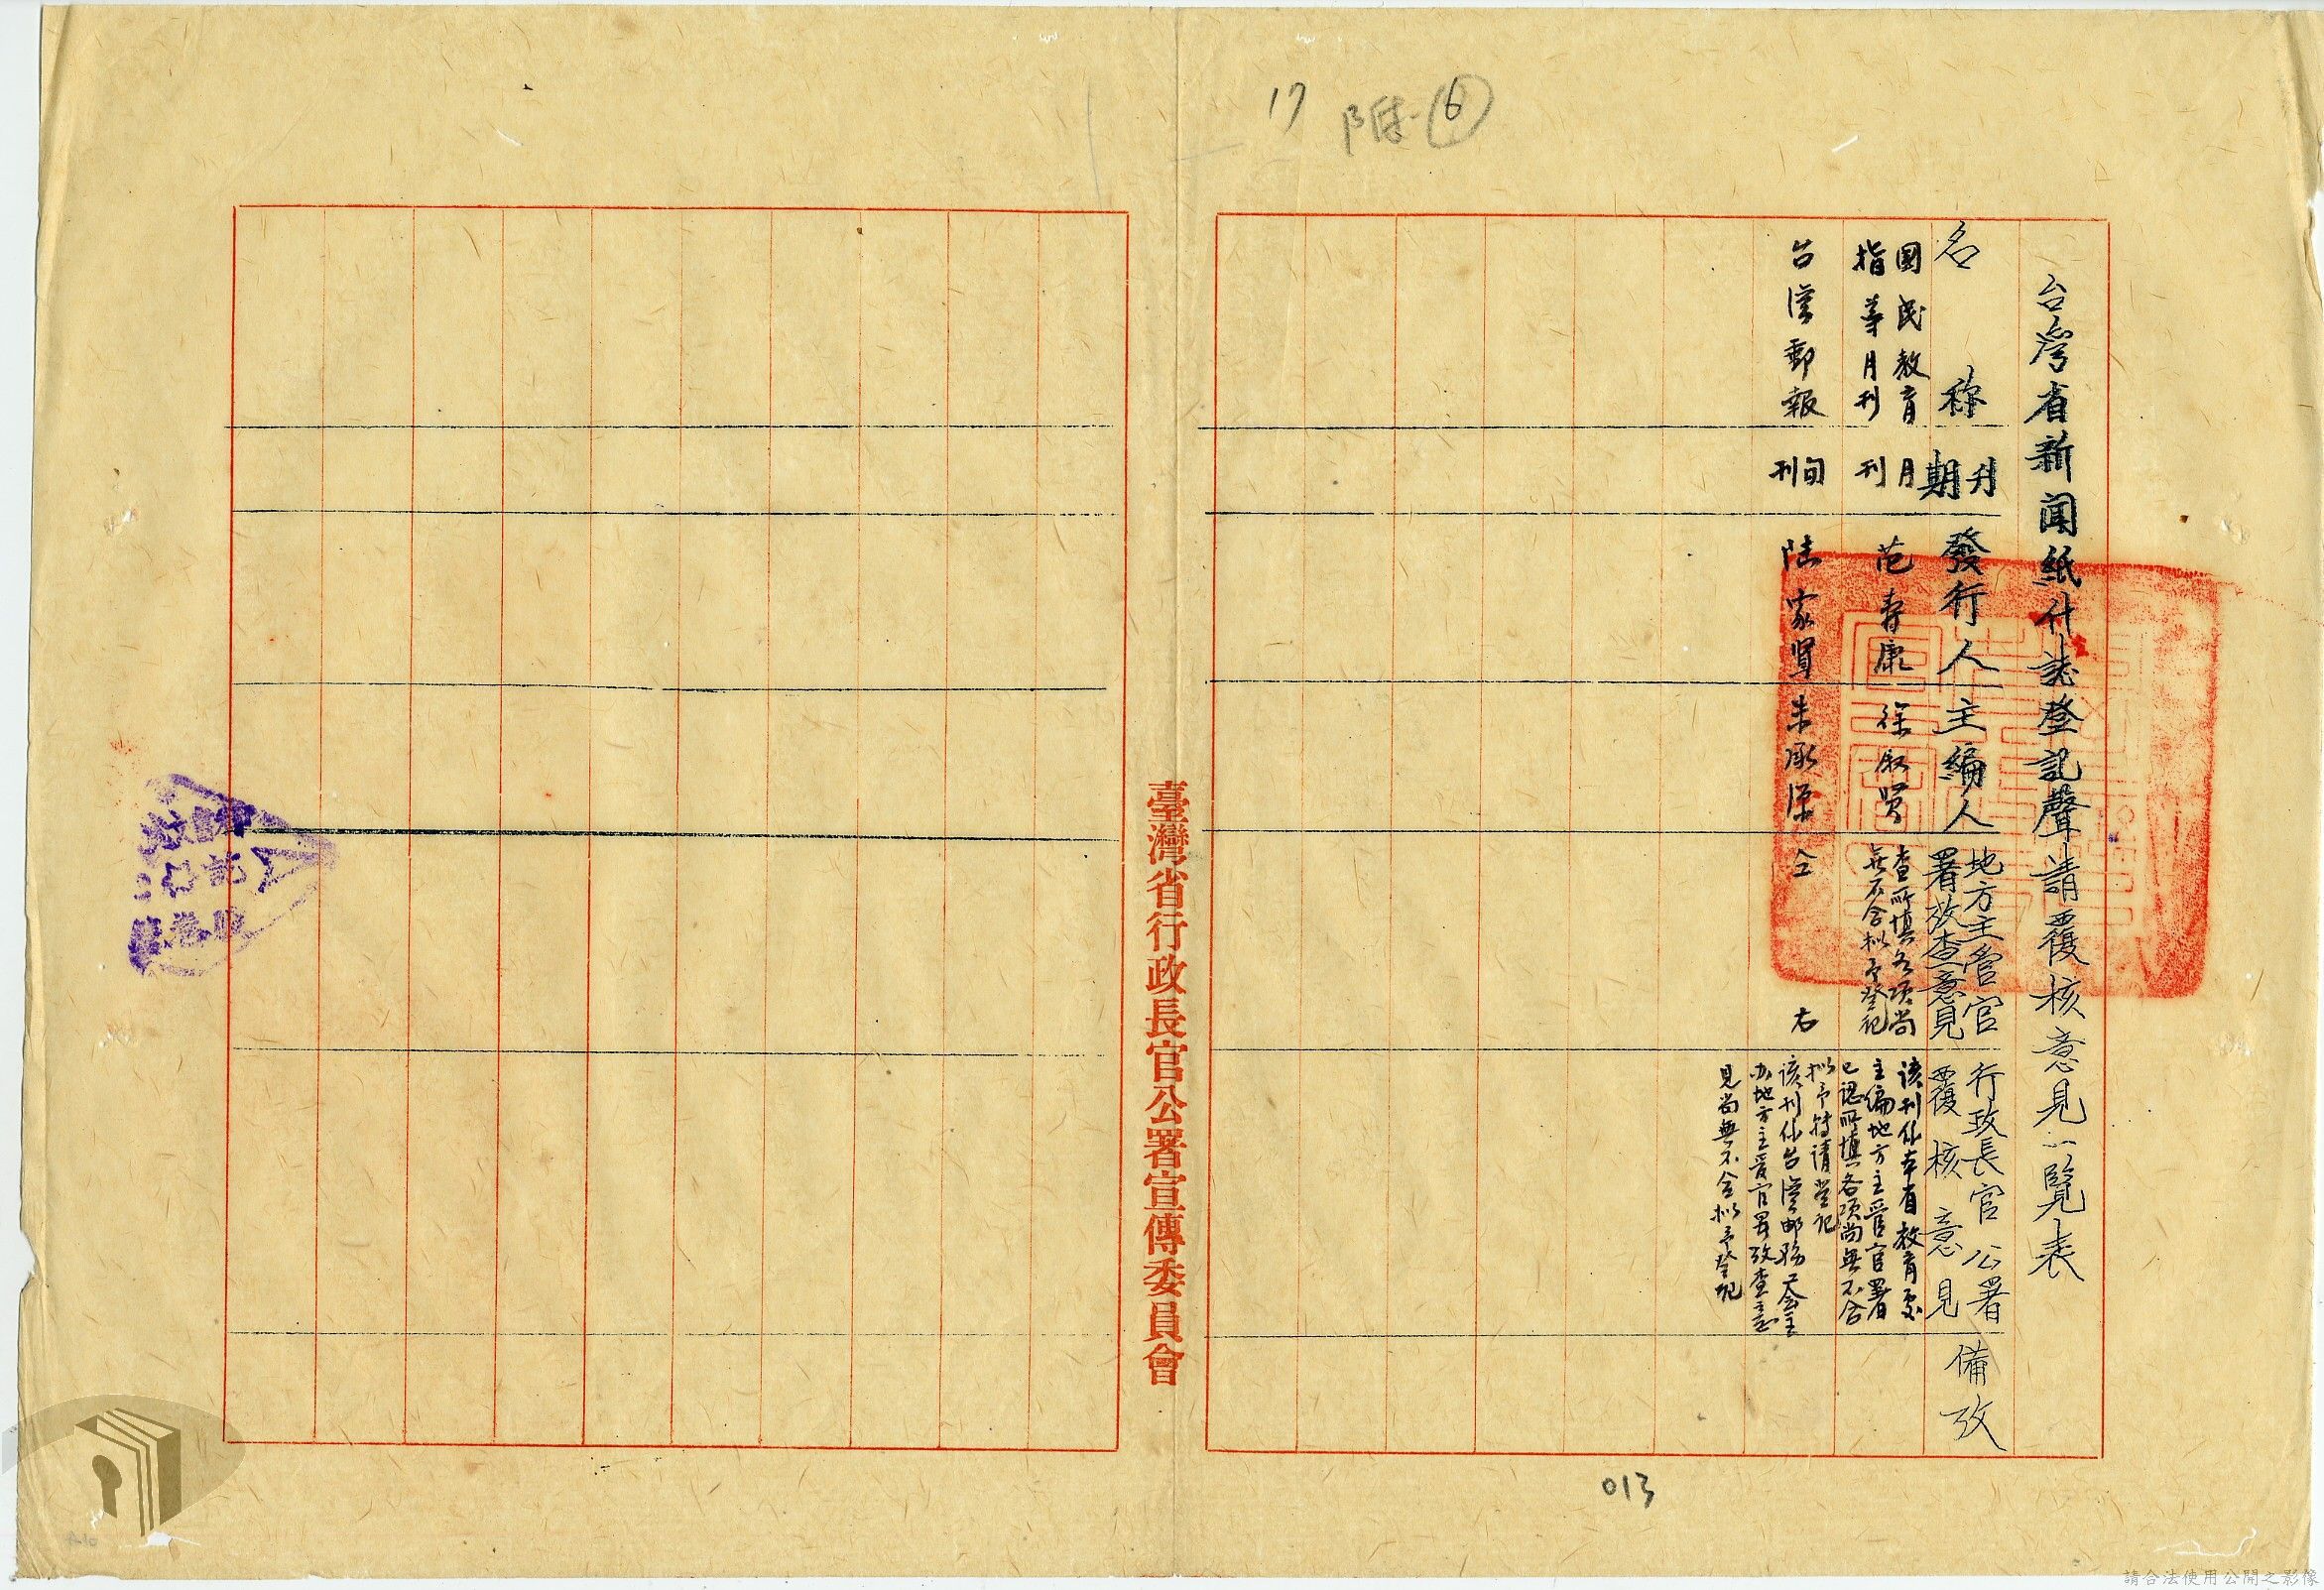 17 附-⑥
台灣省新闻紙什誌登記聲請覆核意見一覽表
名稱
刊期
發行人
主編人
地方主管官
署攷查意見
行政長官公署
覆核意見
備攷
國民教育
指導月刊
月刊
范壽康
徐叙賢
查所填各项尚
無不合拟予登记
该刊係本省教育处
主编地方主管官署
已認所填各项尚無不合
拟予转请登记
台灣郵報
旬刊
陆家贤
朱承源
仝右
该刊係台灣邮務工会主
办地方主管官署攷查意
見尚無不合拟予登记
臺灣省行政長官公署宣傳委員會
013
請合法使用公開之影像